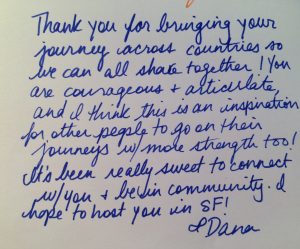 Thank you for bringing your
journey across countries so
we can all share together! You
are courageous + articulate,
and I think this is an inspiration
for other people to go on their
journeys w/ more strength too!
It's been really sweet to connect
w/ you + be in community. I
hope to host you in SF!
Dana